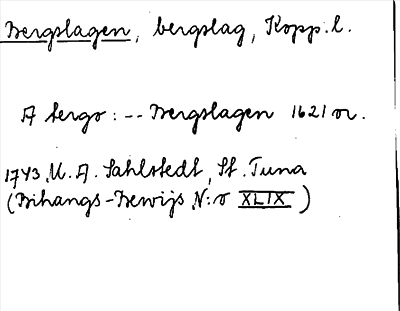 Bergslagen, bergslag, Kopp. l.
A bergs: -- Bergslagen 1621 or.
1743 M. A. Sahlstedt, St. Tuna
(Bihangs-Bewijs N:o XLIX)